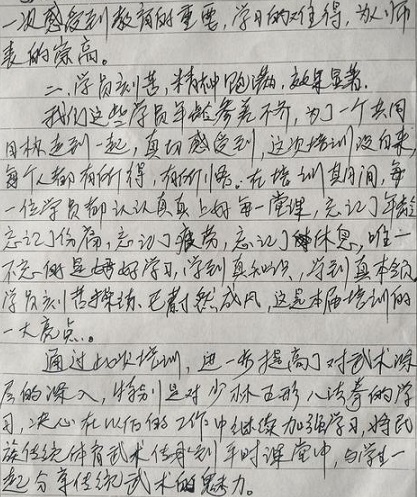 一次感受到教育的重要，学习的难得，为人师
表的崇高。
二、学员刻苦，精神饱满，效果显著。
我们这些学员年龄参差不齐，为了一个共同
目标走到一起，真切感受到，这次培训没白来，
每个人都有所得，有所悟。在培训其间，每
一位学员都认认真真上好每一堂课，忘记了年龄
忘记了伤痛，忘记了疲劳，忘记了休息，唯一
不忘的是好好学习，学到真知识，学到真本领
学员刻苦操练，已蔚然成风，这是本届培训的
一大亮点。
通过此次培训，进一步提高了对武术深
层的深入，特别是对少林五形八法拳的学
习，决心在以后的工作中继续加强学习，将民
族传统体育武术传承到平时课堂中，与学生一
起分享传统武术的魅力。